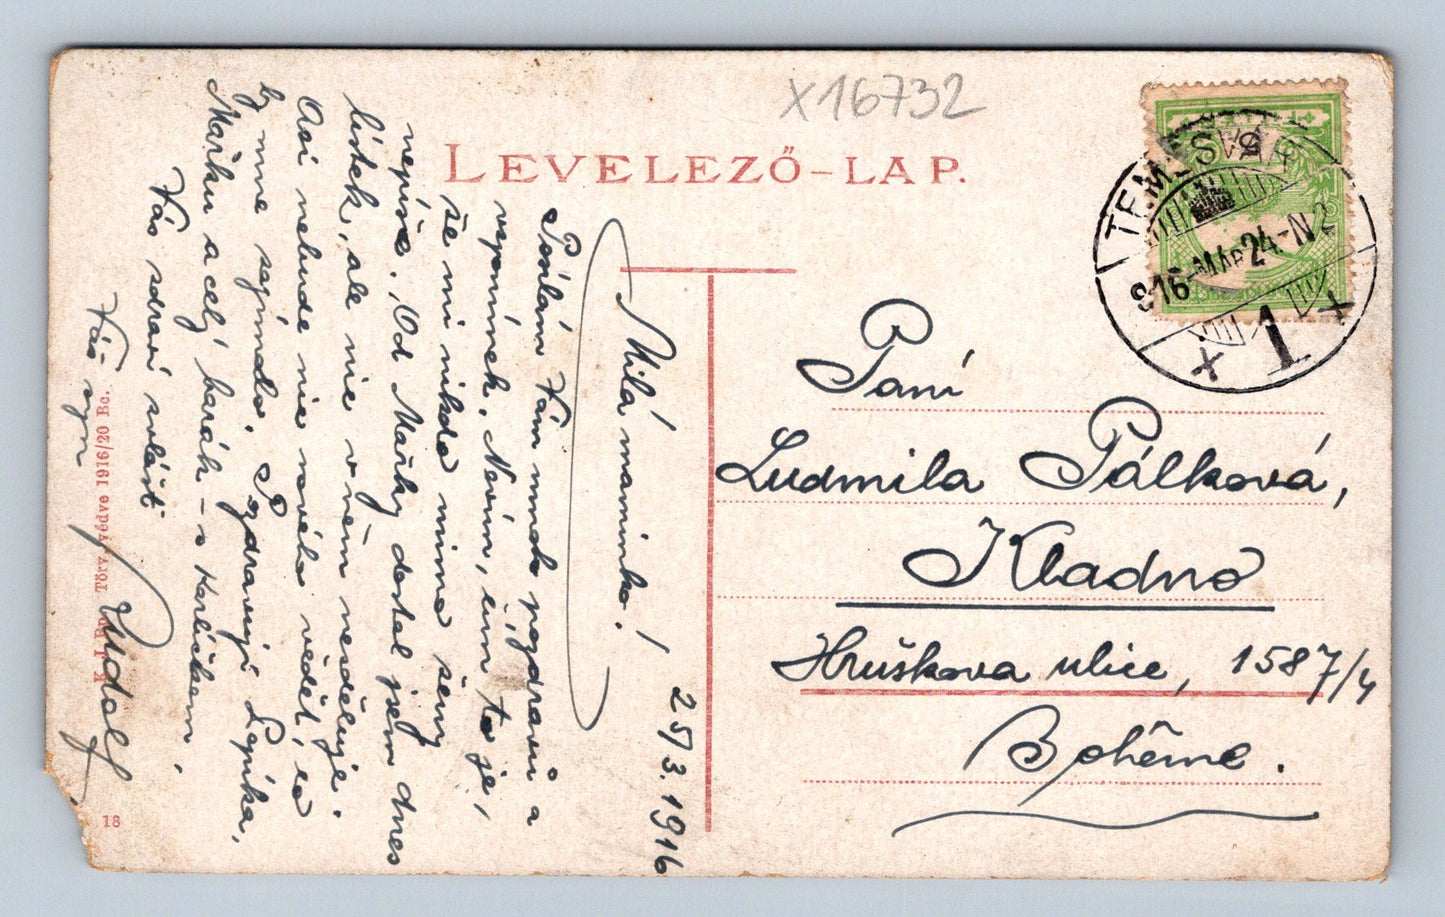 X16732
LEVELEZŐ-LAP.
TEMESVÁR
916 MÁR 24-N2
1
Paní
Ludmila Pálková,
Kladno
Hruškova ulice, 1587/4
Bohême.
25/3.1916
Milá maminko!
Posílám Vám mnoho pozdravů a
vzpomínek. Nevím, čím to je,
že mi nikdo mimo ženy
nepíše. Od Mařky dostal jsem dnes
lístek, ale nic v něm nesděluje.
Asi nebude nic vědět, co
by mne zajímalo. Pozdravují
Mařku a celý barák - s Karlíčkem.
Vás zdraví zvlášť
Váš syn
Rudolf
K.J.Bp. Törv. védve 1916/20 Bc.
18